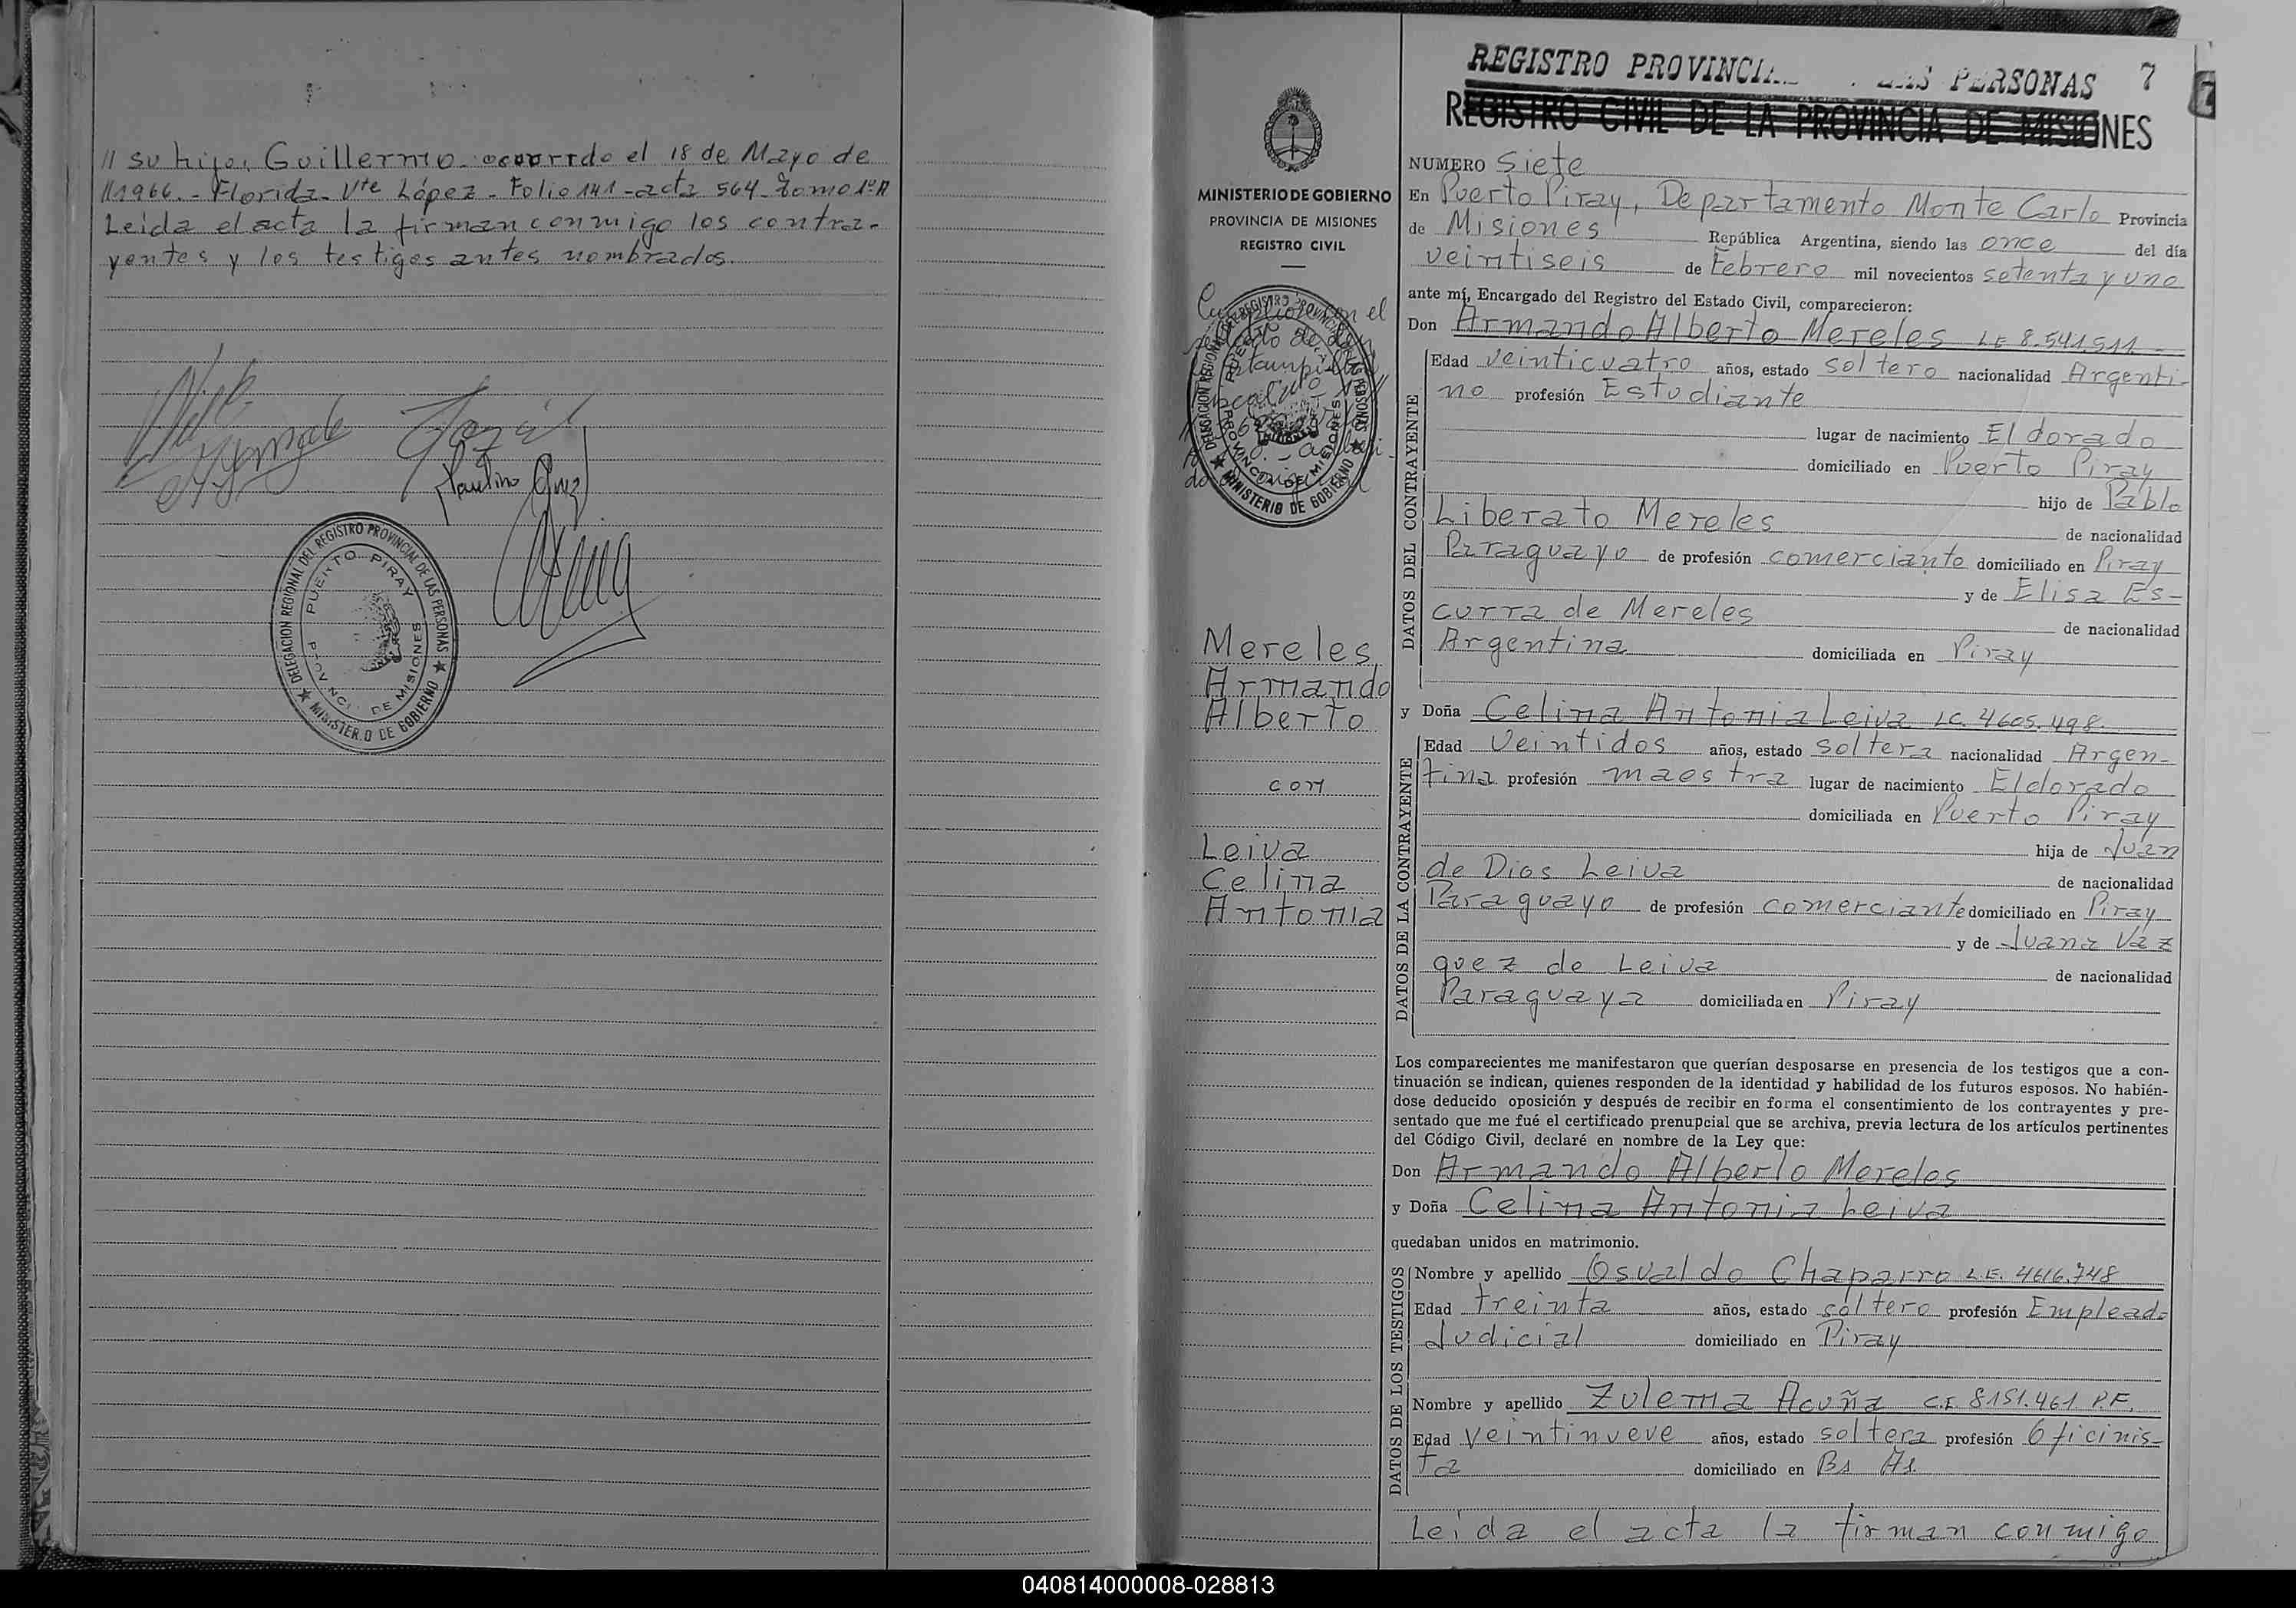 // su hijo, Guillermo ocurrido el 18 de Mayo de
// 1966.- Florida- Vte López- Folio 141 -acta 564- Tomo 1º A
Leida el acta la firman conmigo los contra-
yentes y los testigos antes nombrados.
Paulino
DELEGACION REGIONAL DEL REGISTRO PROVINCIAL DE LAS PERSONAS
PUERTO PIRAY
DE MISIONES
MINISTERIO DE GOBIERNO
REGISTRO PROVINCIA LAS PERSONAS 7
7
REGISTRO CIVIL DE LA PROVINCIA DE MISIONES
MINISTERIO DE GOBIERNO
PROVINCIA DE MISIONES
REGISTRO CIVIL
DELEGACION REGIONAL DEL REGISTRO PROVINCIAL DE LAS PERSONAS
MINISTERIO DE GOBIERNO
Mereles
Armando
Alberto
con
Leiva
Celina
Antonia
NUMERO Siete
En Puerto Piray, Departamento Monte Carlo Provincia
de Misiones República Argentina, siendo las once del día
veintiseis de Febrero mil novecientos setenta y uno
ante mí, Encargado del Registro del Estado Civil, comparecieron:
Don Armando Alberto Mereles LE 8.541511-
DATOS DEL CONTRAYENTE
Edad veinticuatro años, estado soltero nacionalidad Argenti-
no profesión Estudiante
lugar de nacimiento Eldorado
domiciliado en Puerto Piray
hijo de Pablo
Liberato Mereles de nacionalidad
Paraguayo de profesión comerciante domiciliado en Piray
y de Elisa Es-
curra de Mereles de nacionalidad
Argentina domiciliada en Piray
y Doña Celina Antonia Leiva LC. 4605.498.
DATOS DE LA CONTRAYENTE
Edad Veintidos años, estado soltera nacionalidad Argen-
tina profesión maestra lugar de nacimiento Eldorado
domiciliada en Puerto Piray
hija de Juan
de Dios Leiva de nacionalidad
Paraguayo de profesión comerciante domiciliado en Piray
y de Juana Váz
quez de Leiva de nacionalidad
Paraguaya domiciliada en Piray
Los comparecientes me manifestaron que querían desposarse en presencia de los testigos que a con-
tinuación se indican, quienes responden de la identidad y habilidad de los futuros esposos. No habién-
dose deducido oposición y después de recibir en forma el consentimiento de los contrayentes y pre-
sentado que me fué el certificado prenupcial que se archiva, previa lectura de los artículos pertinentes
del Código Civil, declaré en nombre de la Ley que:
Don Armando Alberto Mereles
y Doña Celina Antonia Leiva
quedaban unidos en matrimonio.
DATOS DE LOS TESTIGOS
Nombre y apellido Osvaldo Chaparro L.E. 4616.748
Edad treinta años, estado soltero profesión Empleado
Judicial domiciliado en Piray
Nombre y apellido Zulema Acuña C.I. 8151.461. P.F.
Edad Veintinueve años, estado soltera profesión Oficinis-
ta domiciliado en Bs As.
Leida el acta la firman conmigo
040814000008-028813